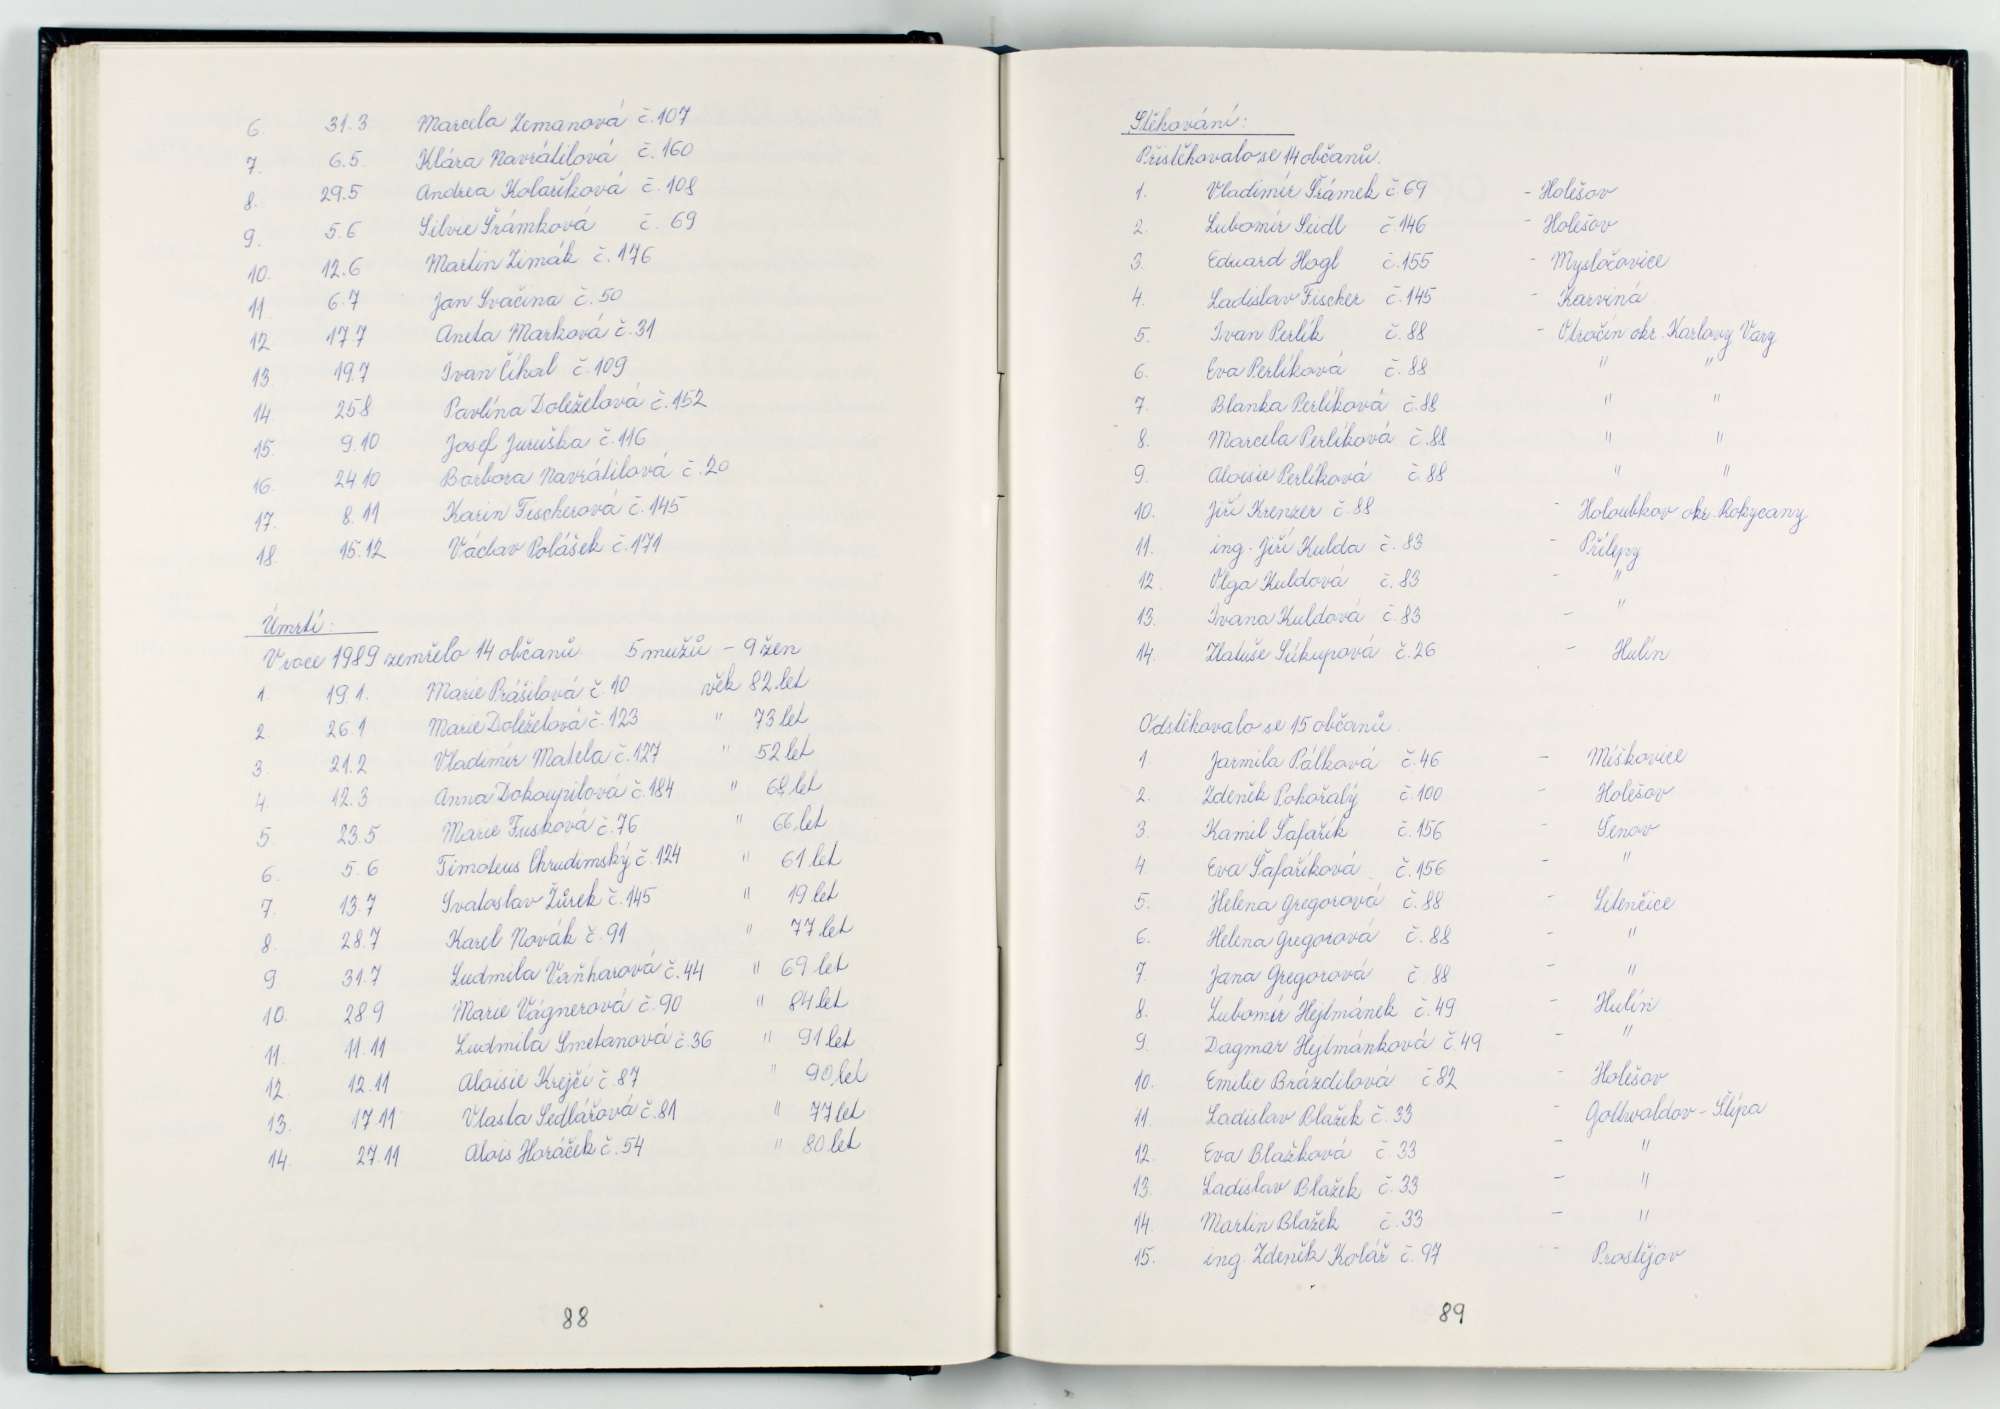 6. 31.3 Marcela Zemanová č.107
7. 6.5. Klára Navrátilová č.160
8. 29.5 Andrea Kolaříková č.108
9. 5.6 Silvie Šrámková č. 69
10. 12.6 Martin Zimák č.176
11 6.7 Jan Svačina č.50
12 17.7 Aneta Marková č.31
13. 19.7 Ivan Číhal č.109
14 25.8 Pavlína Doleželová č.152
15. 9.10 Josef Juruška č.116
16. 24.10 Barbora Navrátilová č.20
17. 8.11 Karin Fischerová č.145
18. 15.12 Václav Polášek č.171
Úmrtí:
V roce 1989 zemřelo 14 občanů 5 mužů - 9 žen
1. 19.1. Marie Prášilová č.10 věk 82 let
2 26.1 Marie Doleželová č.123 " 73 let
3. 21.2 Vladimír Matela č.127 " 52 let
4. 12.3 Anna Dokoupilová č.184 " 68 let
5. 23.5 Marie Fusková č.76 " 66 let
6. 5.6 Timoteus Chrudimský č.124 " 61 let
7. 13.7 Svatoslav Žůrek č.145 " 19 let
8. 28.7 Karel Novák č.91 " 77 let
9 31.7 Ludmila Vaňharová č.44 " 69 let
10. 28.9 Marie Vágnerová č.90 " 84 let
11. 11.11 Ludmila Smetanová č.36 " 91 let
12. 12.11 Aloisie Krejčí č.87 " 90 let
13. 17.11 Vlasta Sedlářová č.81 " 77 let
14. 27.11 Alois Horáček č.54 " 80 let
88
Stěhování:
Přistěhovalo se 14 občanů.
1. Vladimír Šrámek č.69 - Holešov
2. Lubomír Seidl č.146 - Holešov
3. Eduard Hogl č.155 - Mysločovice
4. Ladislav Fischer č.145 - Karviná
5. Ivan Perlík č.88 - Otročín okr. Karlovy Vary
6. Eva Perlíková č.88 " "
7. Blanka Perlíková č.88 " "
8. Marcela Perlíková č.88 " "
9. Aloisie Perlíková č.88 " "
10. Jiří Krenzer č.88 - Holoubkov okr. Rokycany
11. ing. Jiří Kulda č.83 - Přílepy
12. Olga Kuldová č.83 - "
13. Ivana Kuldová č.83 - "
14. Zlatuše Súkupová č.26 - Hulín
Odstěhovalo se 15 občanů.
1. Jarmila Pálková č.46 - Míškovice
2. Zdeněk Pokořalý č.100 - Holešov
3. Kamil Šafařík č.156 - Šenov
4 Eva Šafaříková č.156 - "
5. Helena Gregorová č.88 - Litenčice
6. Helena Gregorová č.88 - "
7. Jana Gregorová č.88 - "
8. Lubomír Hejlmánek č.49 - Hulín
9. Dagmar Hejlmánková č.49 - "
10. Emilie Brázdilová č82 - Holešov
11. Ladislav Blažek č.33 - Gottwaldov - Štípa
12. Eva Blažková č.33 - "
13. Ladislav Blažek č.33 - "
14. Martin Blažek č.33 - "
15. ing. Zdeněk Kolář č.97 - Prostějov
89